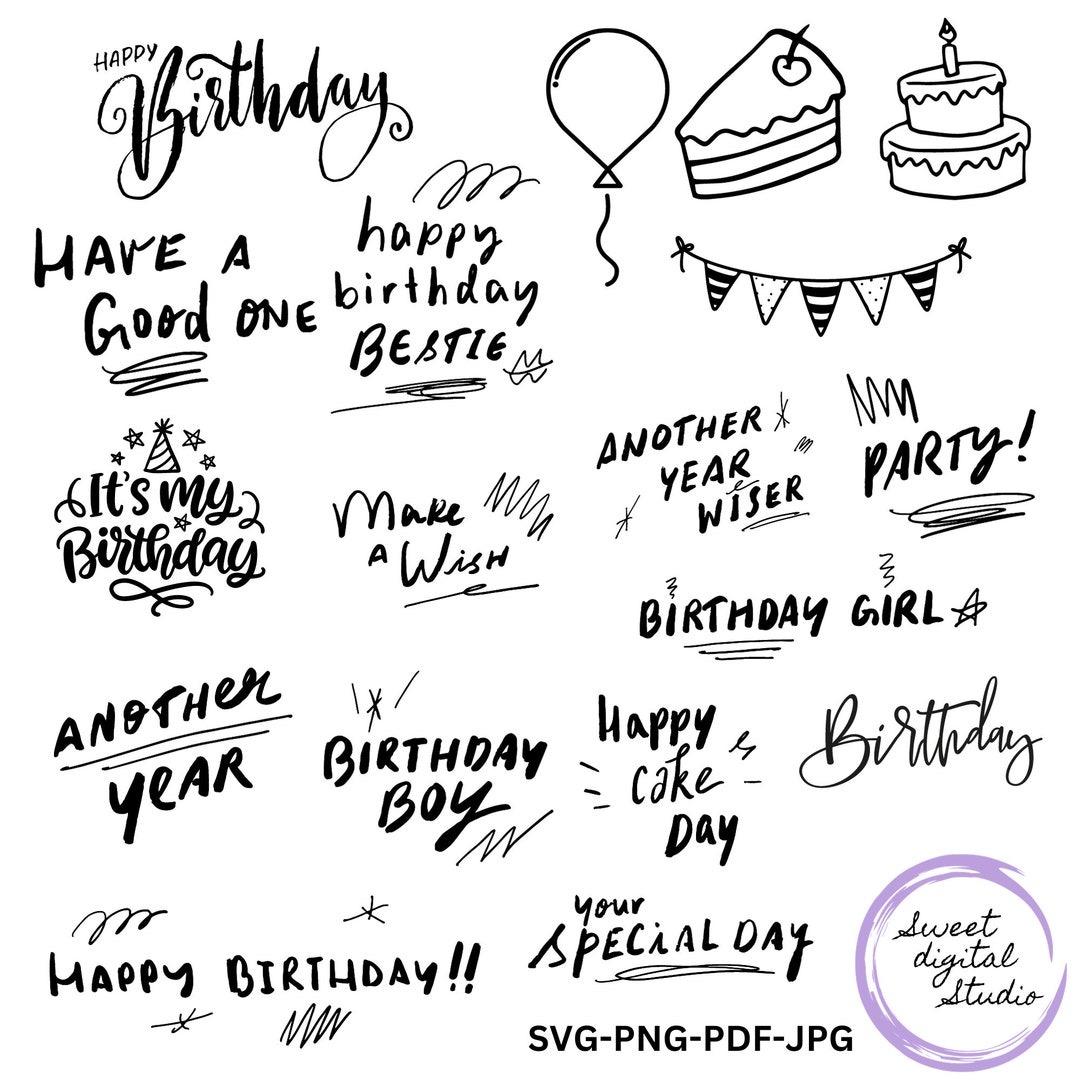 HAPPY
Birthday
HAVE A
Good ONE
happy
birthday
BESTIE
ANOTHER
YEAR
WISER
PARTY!
It's my
Birthday
Make
A Wish
BIRTHDAY GIRL
ANOTHer
YeAR
BIRTHDAY
BOY
Happy
Cake
Day
Birthday
HAPPY BIRTHDAY!!
your
SPECiAL DAY
Sweet
digital
Studio
SVG-PNG-PDF-JPG